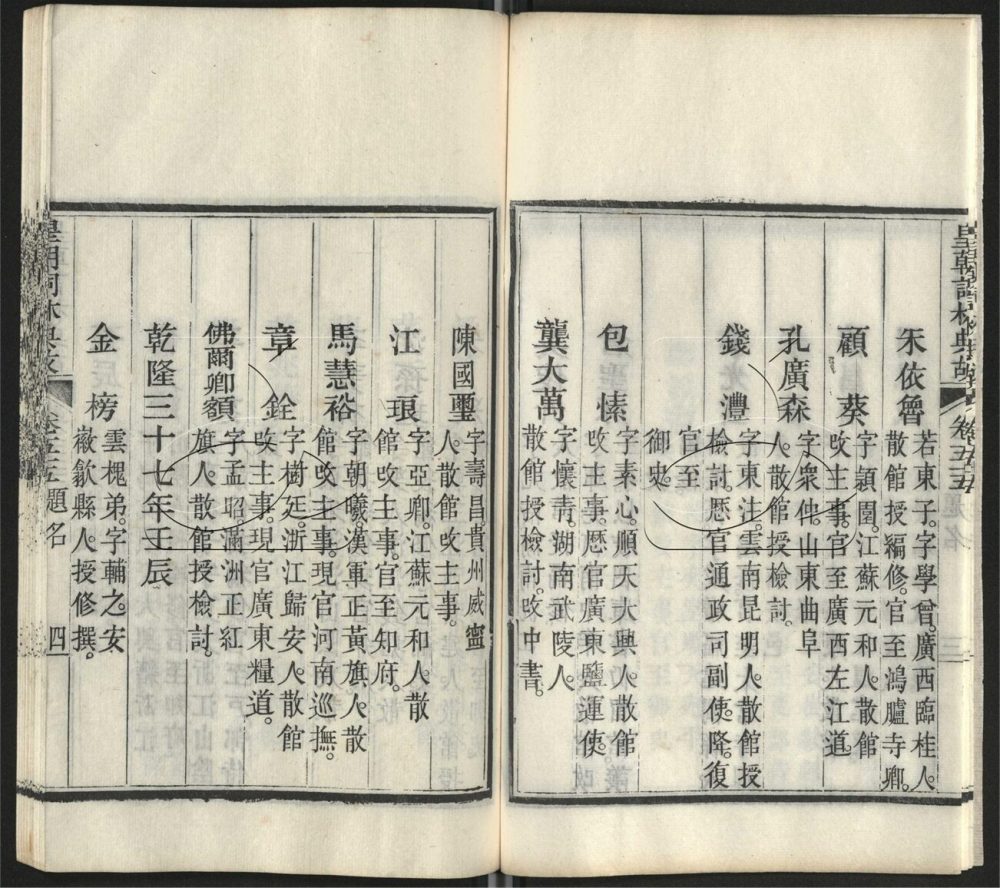 朱依魯
若東子。字學曾。廣西臨桂人。
散館授編修。官至鴻臚寺卿。
顧葵
字穎園。江蘇元和人。散館
改主事。官至廣西左江道。
孔廣森
字衆仲。山東曲阜
人。散館授檢討。
錢澧
字東注。雲南昆明人。散館授
檢討。歷官通政司副使。降。復
官至
御史。
包愫
字素心。順天大興人。散館
改主事。歷官廣東鹽運使。
龔大萬
字懷青。湖南武陵人。
散館授檢討。改中書。
陳國璽
字壽昌。貴州威寧
人。散館改主事。
江琅
字亞卿。江蘇元和人。散
館改主事。官至知府。
馬慧裕
字朝曦。漢軍正黃旗人。散
館改主事。現官河南巡撫。
章銓
字樹廷。浙江歸安人。散館
改主事。現官廣東糧道。
佛爾卿額
字孟昭。滿洲正紅
旗人。散館授檢討。
乾隆三十七年壬辰
金榜
雲槐弟。字輔之。安
徽歙縣人。授修撰。
卷五十五 題名 四